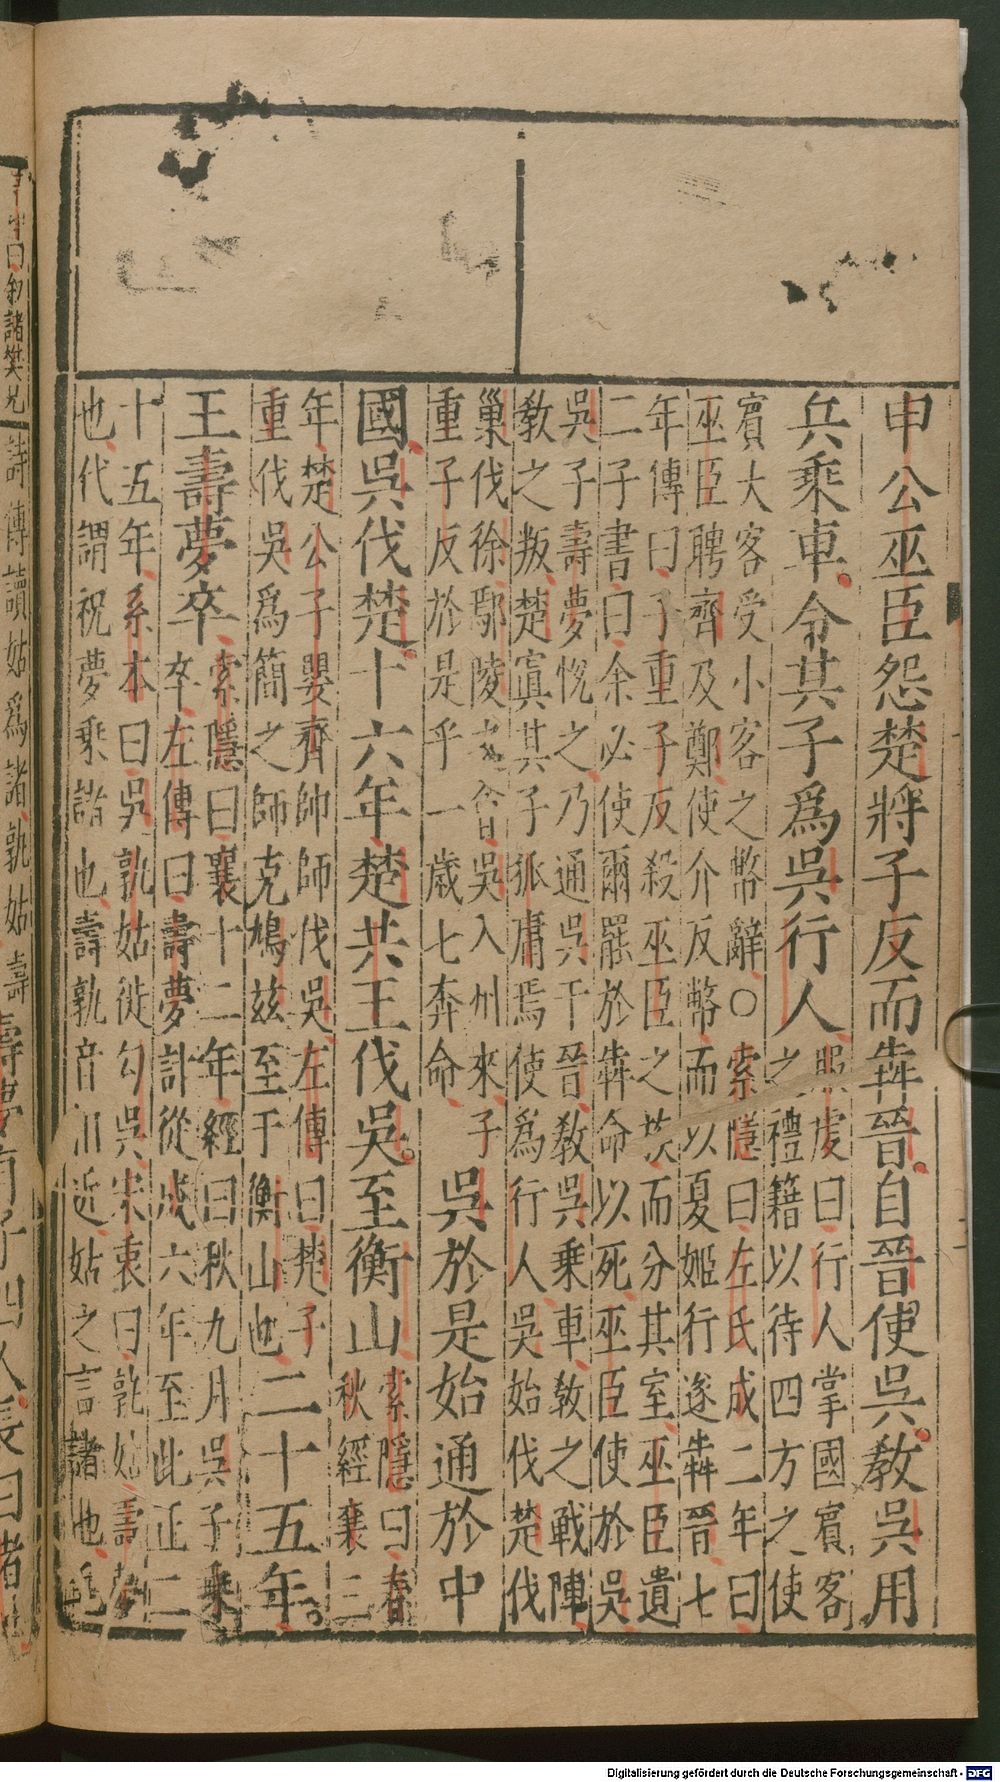 申公巫臣怨楚將子反而犇晉自晉使吳教吳用
兵乘車令其子爲吳行人
服虔曰行人掌國賓客
之禮籍以待四方之使
賓大客受小客之幣辭○索隱曰左氏成二年曰
巫臣聘齊及鄭使介反幣而以夏姬行遂犇晉七
年傳曰子重子反殺巫臣之族而分其室巫臣遺
二子書曰余必使爾罷於犇命以死巫臣使於吳
吳子壽夢悅之乃通吳于晉教吳乘車教之戰陣
教之叛楚寘其子狐庸焉使爲行人吳始伐楚伐
巢伐徐鄢陵之會吳入州來子
重子反於是乎一歲七奔命
吳於是始通於中
國吳伐楚十六年楚共王伐吳至衡山
索隱曰春
秋經襄三
年楚公子嬰齊帥師伐吳左傳曰楚子
重伐吳爲簡之師克鳩兹至于衡山也
二十五年
王壽夢卒
索隱曰襄十二年經曰秋九月吳子乘
卒左傳曰壽夢計從成六年至此正二
十五年系本曰吳孰姑徙勾吳宋衷曰孰姑壽夢
也代謂祝夢乘諸也壽孰音相近姑之言諸也毛
詩傳讀姑爲諸孰姑壽
曰叙諸樊兄
Digitalisierung gefördert durch die Deutsche Forschungsgemeinschaft - DFG